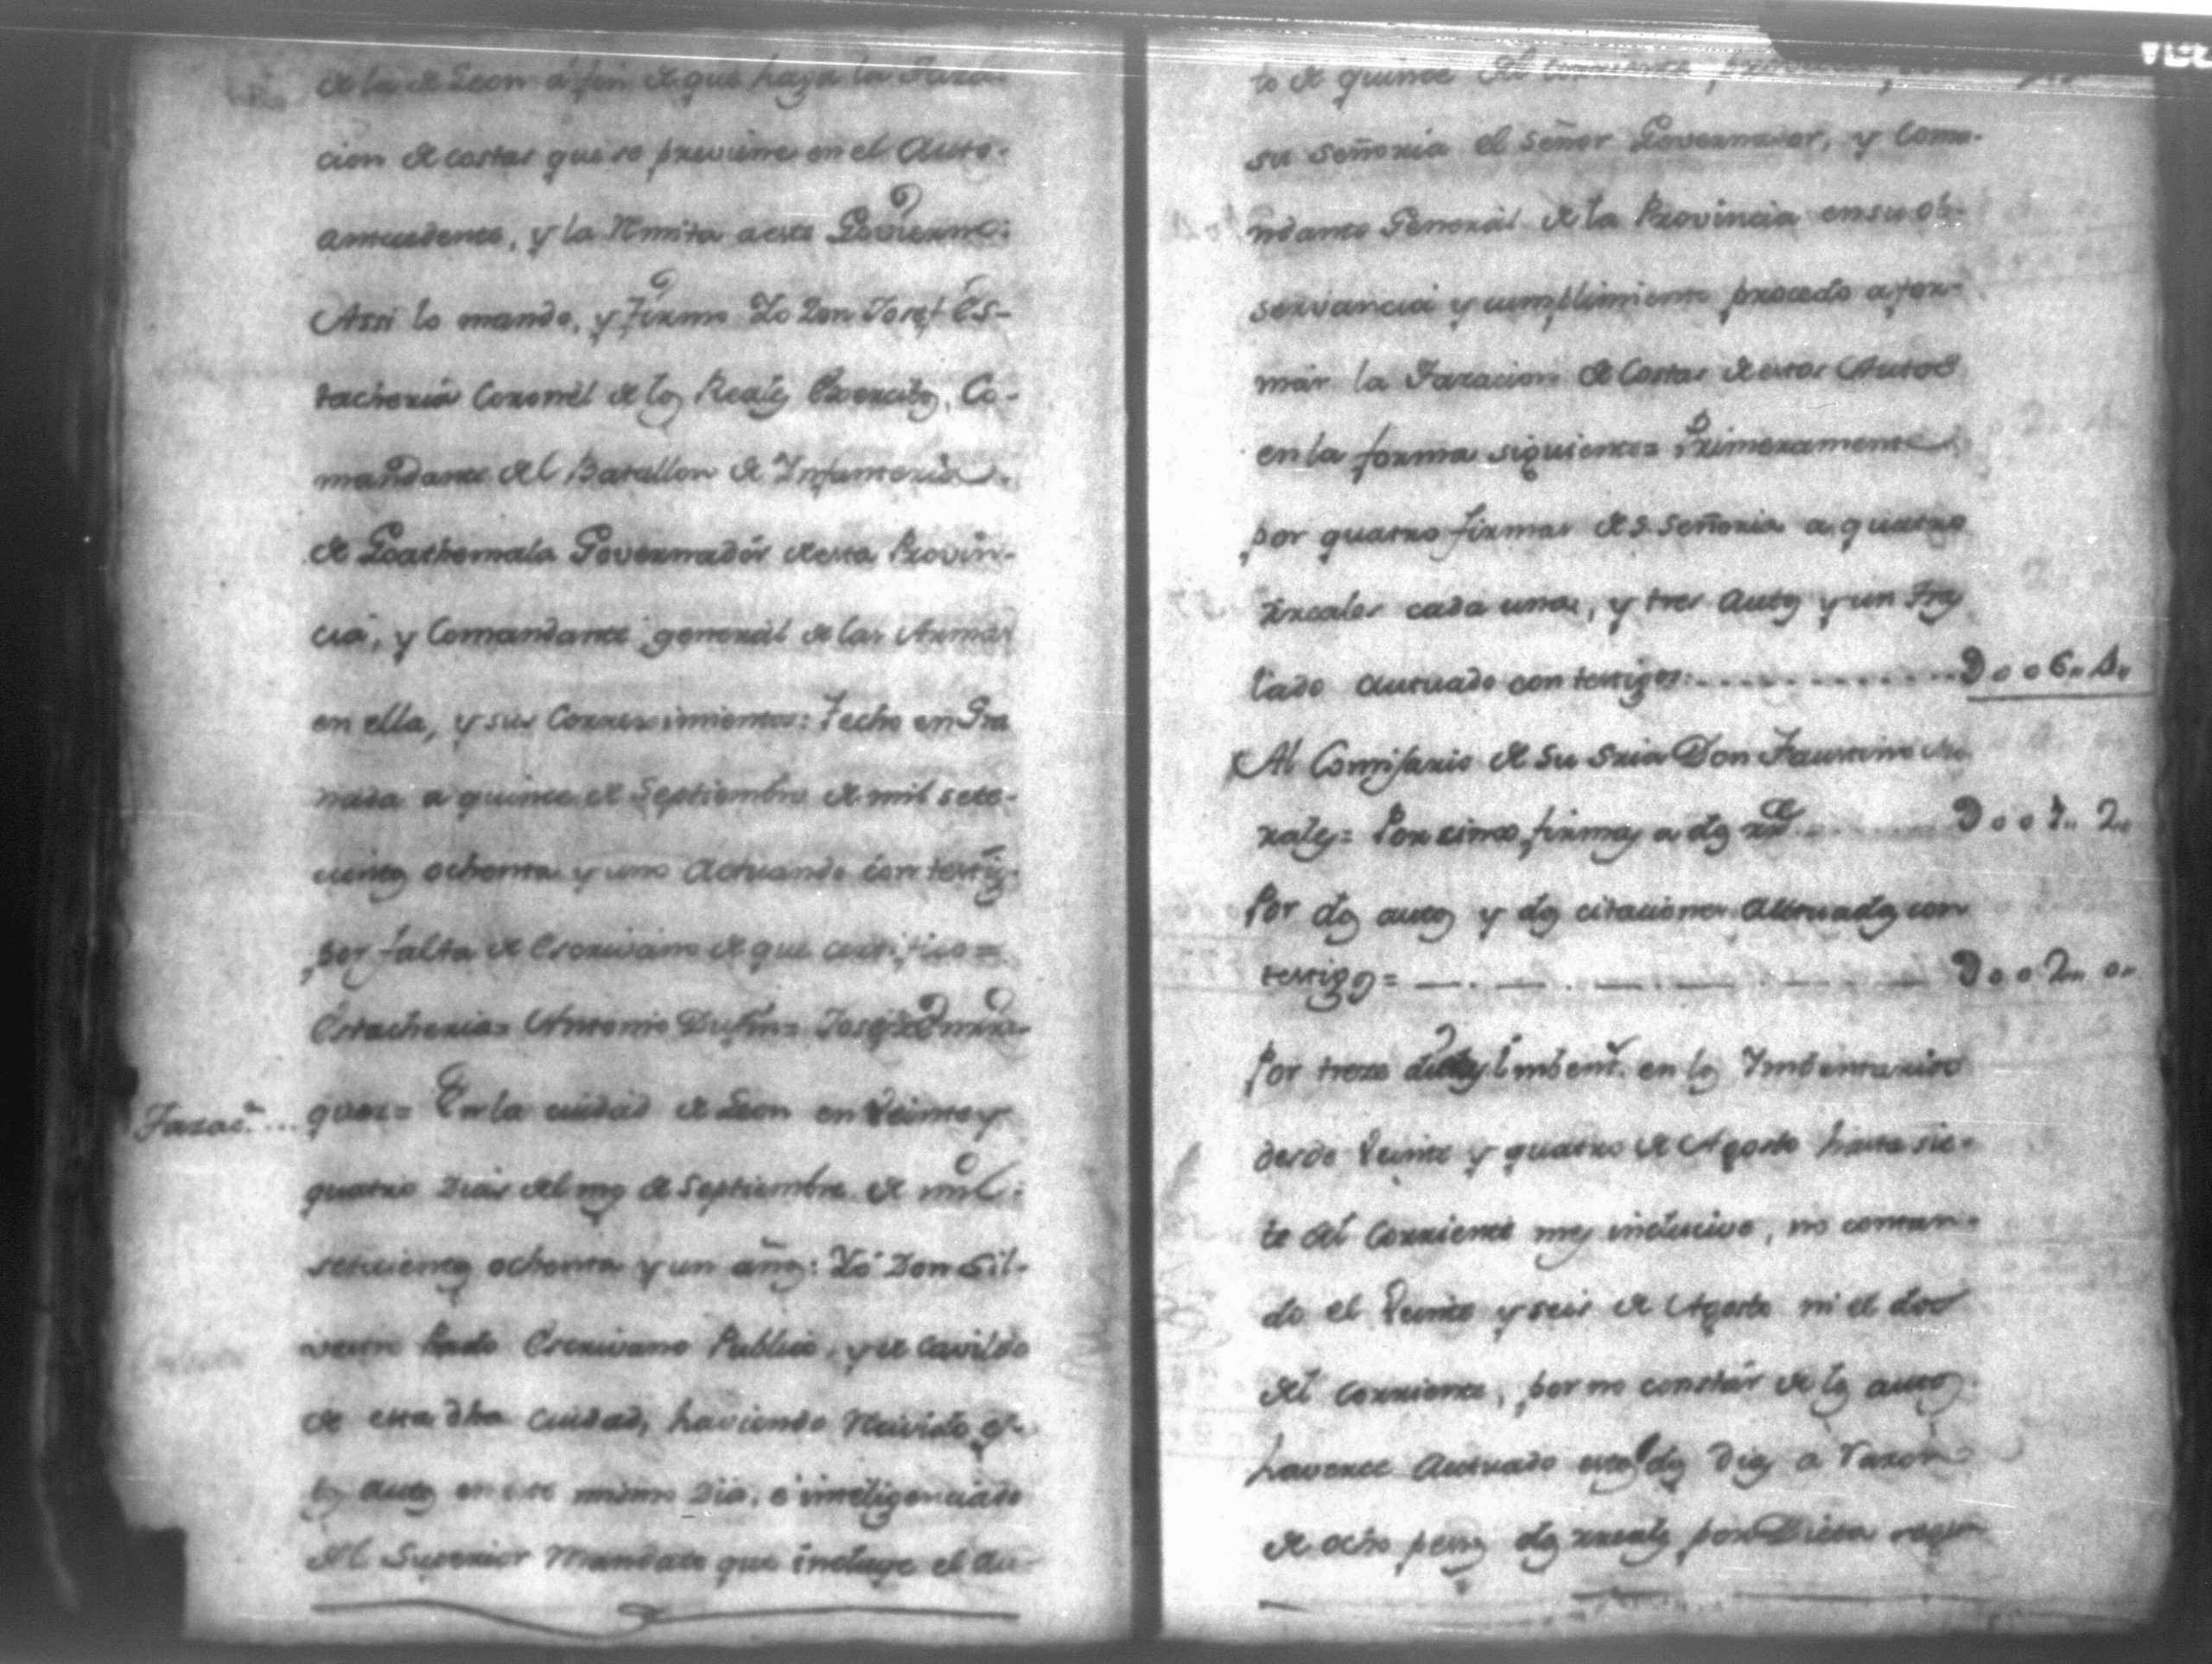 de la de Leon á fin de que haga la Tasa-
cion de costas que se previene en el Auto
antecedente, y la Remita a este Govierno:
Assi lo mando, y Firmo Yo Don Josef Es-
tacheria Coronel de los Reales Exercitos, Co-
mandante del Batallon de Infanteria
de Goathemala Governadór de esta Provin-
cia, y Comandante general de las Armas
en ella, y sus Corregimientos: Fecho en Gra
nada a quince de Septiembre de mil sete-
cientos ochenta y uno Actuando con testigs.
por falta de Escrivano de que certifico =
Estacheria = Antonio = Josef
Tasac.n ... quez = En la ciudad de Leon en Veinte y
quatro Dias del mes de Septiembre de mil
setecientos ochenta y un años: Yó Don Sil-
verio Prado Escrivano Publico, y de Cavildo
de esta dha Ciudad, haviendo Recivido es-
tos autos en este mismo Dia, e inteligenciado
del Superior Mandato que incluye el Au-
to de quince del corriente
su Señoria el Señor Governador, y Coma-
ndante General de la Provincia en su ob-
servancia y cumplimiento procedo a for-
már la Tasacion de Costas de estos Autos
en la forma siguiente = Primeramente
por quatro firmas de S. Señoria a quatro
rreales cada una, y tres autos y un Tras
lado actuado con testigos: D 006.. 4..
Al Comisario de su Sria Don Faustino Mo
rales = Por cinco firmas a dos rrs D 001.. 2..
Por dos autos y dos citaciones Actuadas con
testigos = D 002.. 0..
Por treze en los Imbentarios
desde Veinte y quatro de Agosto hasta sie-
te del Corriente mes inclucive, no contan-
do el Veinte y seis de Agosto ni el dos
del Corriente, por no constár de los autos
haverse Actuado estos dos Dias a razon
de ocho pesos dos rreales por Dieta segun